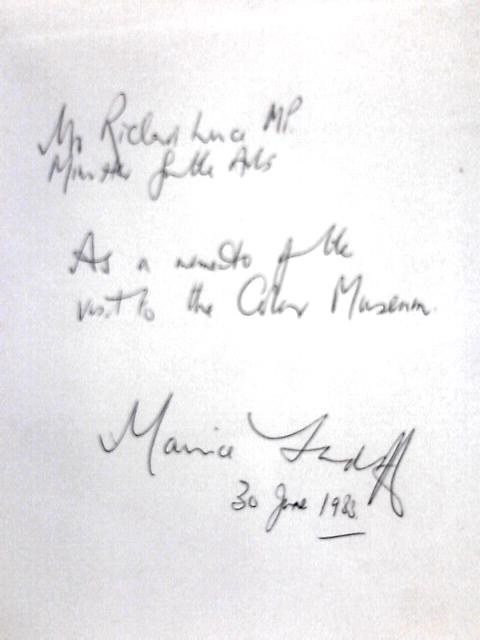 Mr Richard Luce MP.
Minister for the Arts
As a memento of the
visit to the Colour Museum.
Maurice
30 June 198